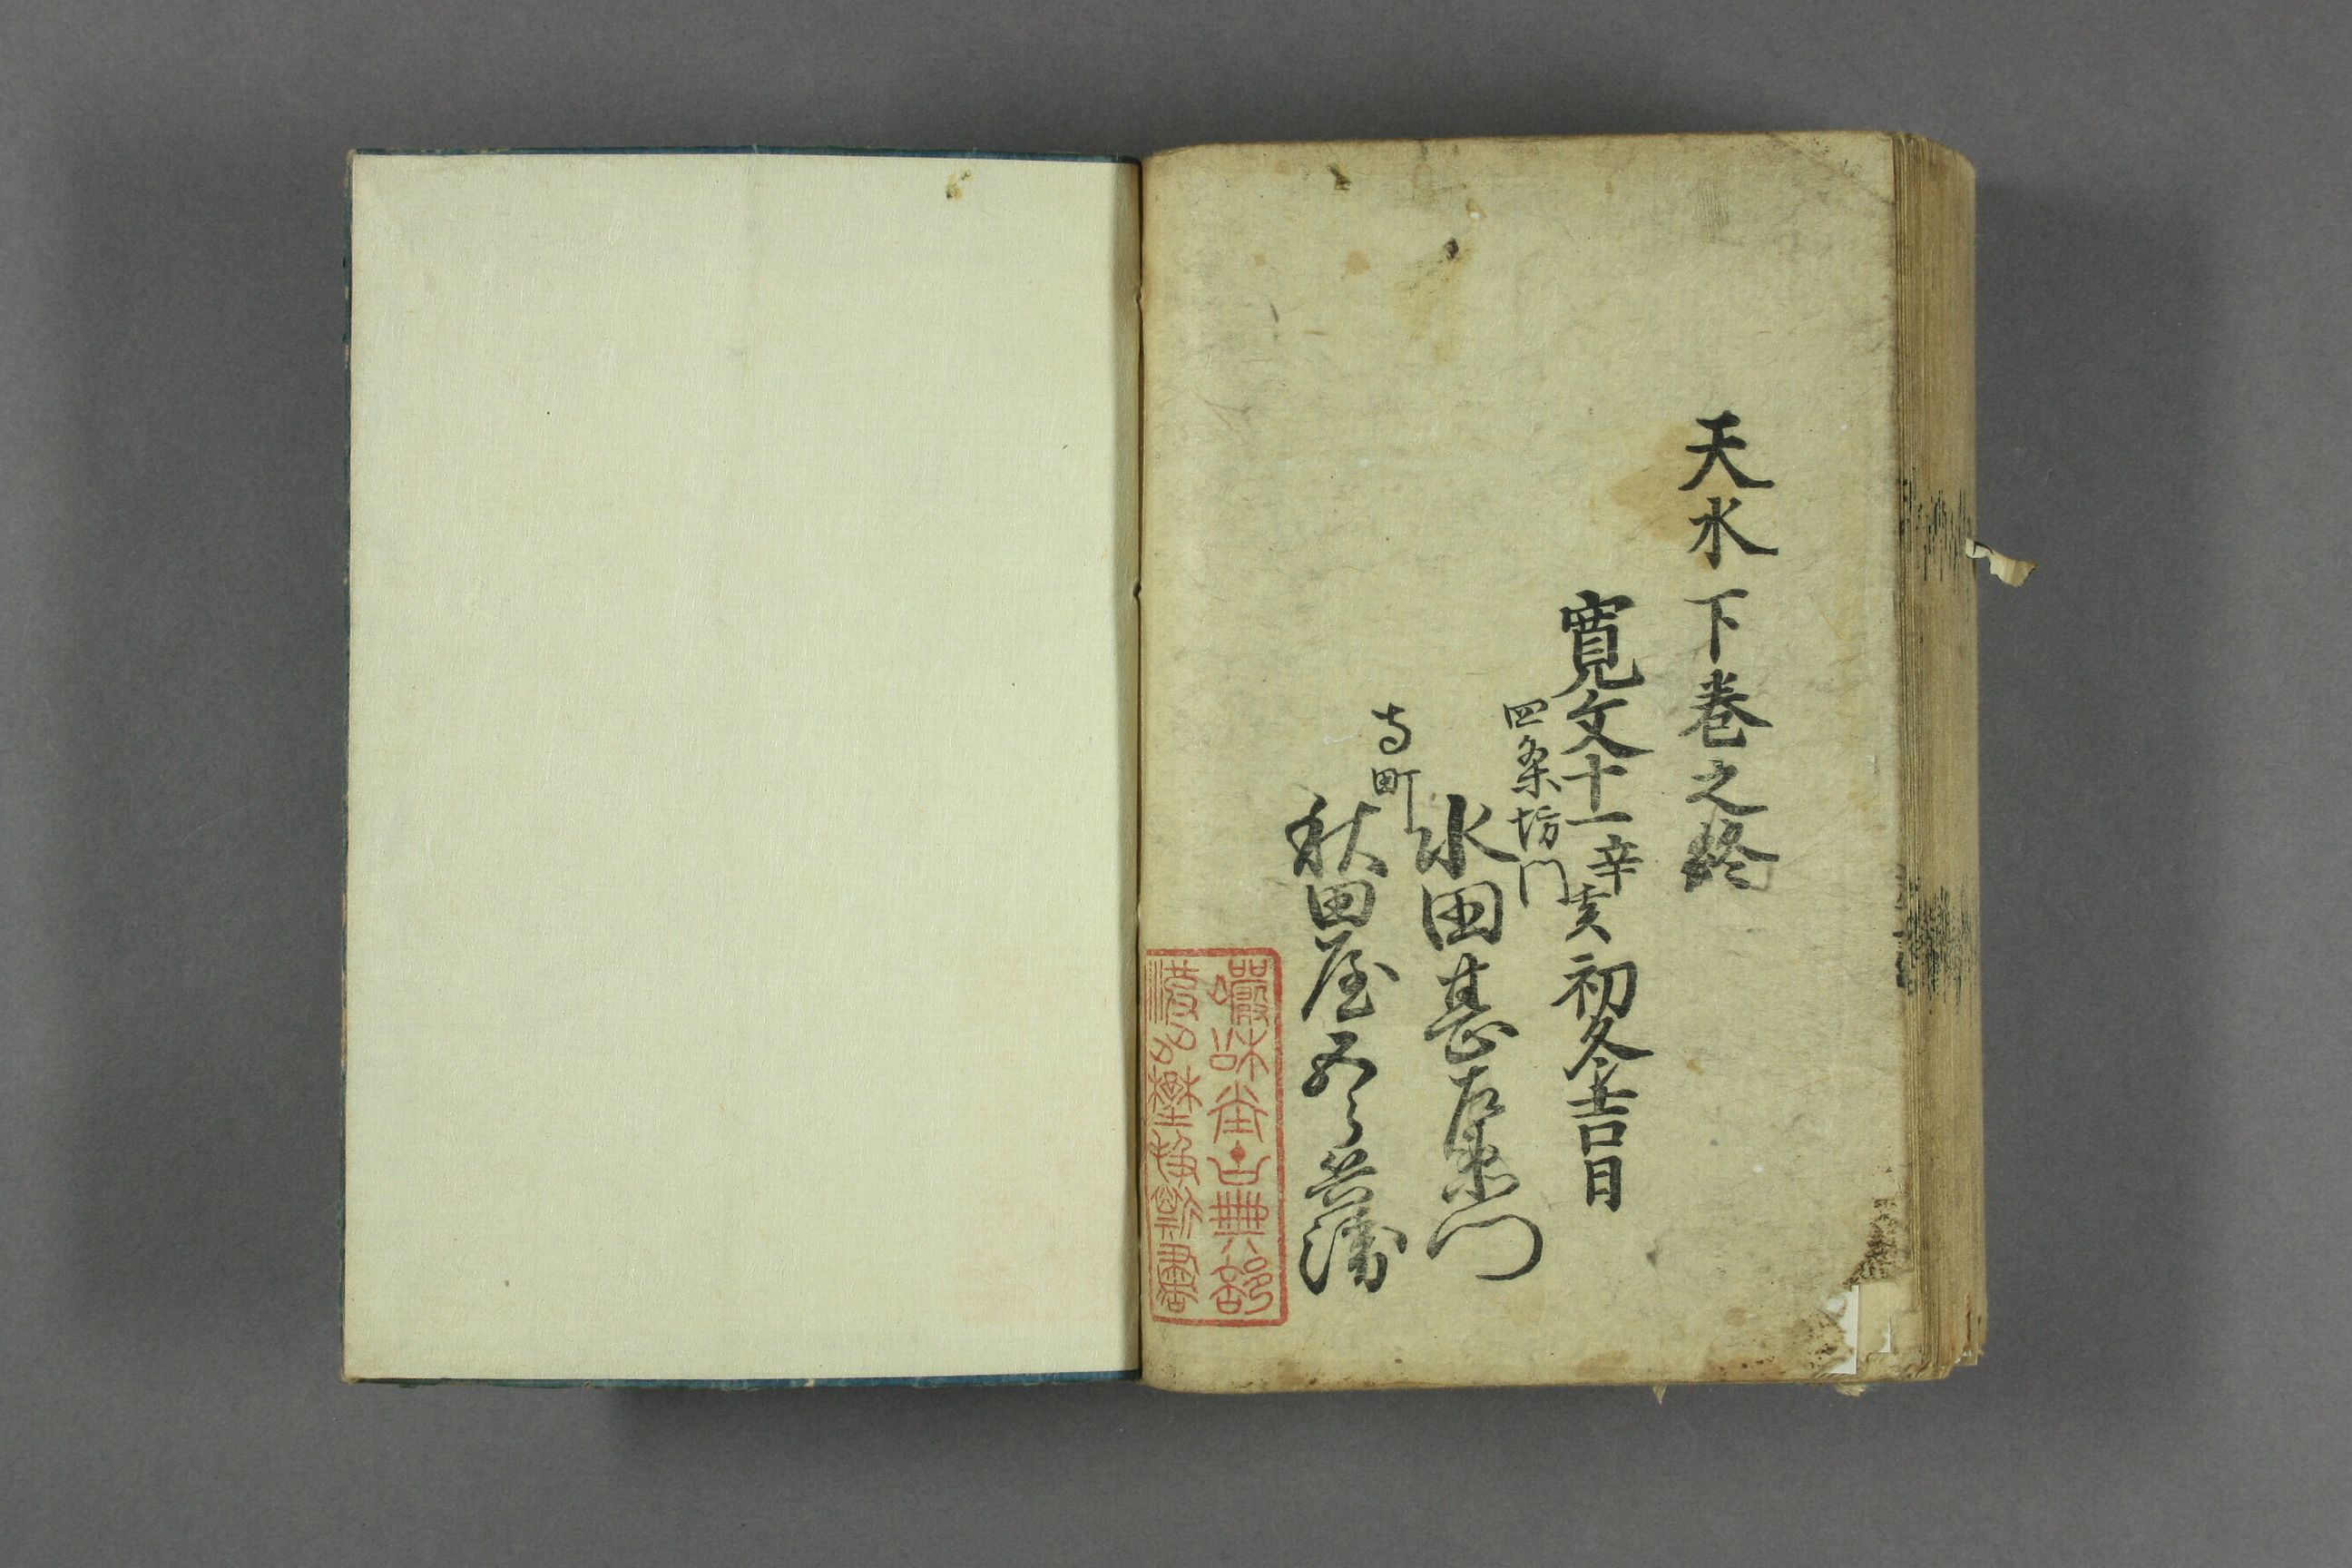 天水下巻之終
寛文十一辛亥初冬吉日
四条坊門
水田甚左衛門
寺町
秋田屋五郎兵衛